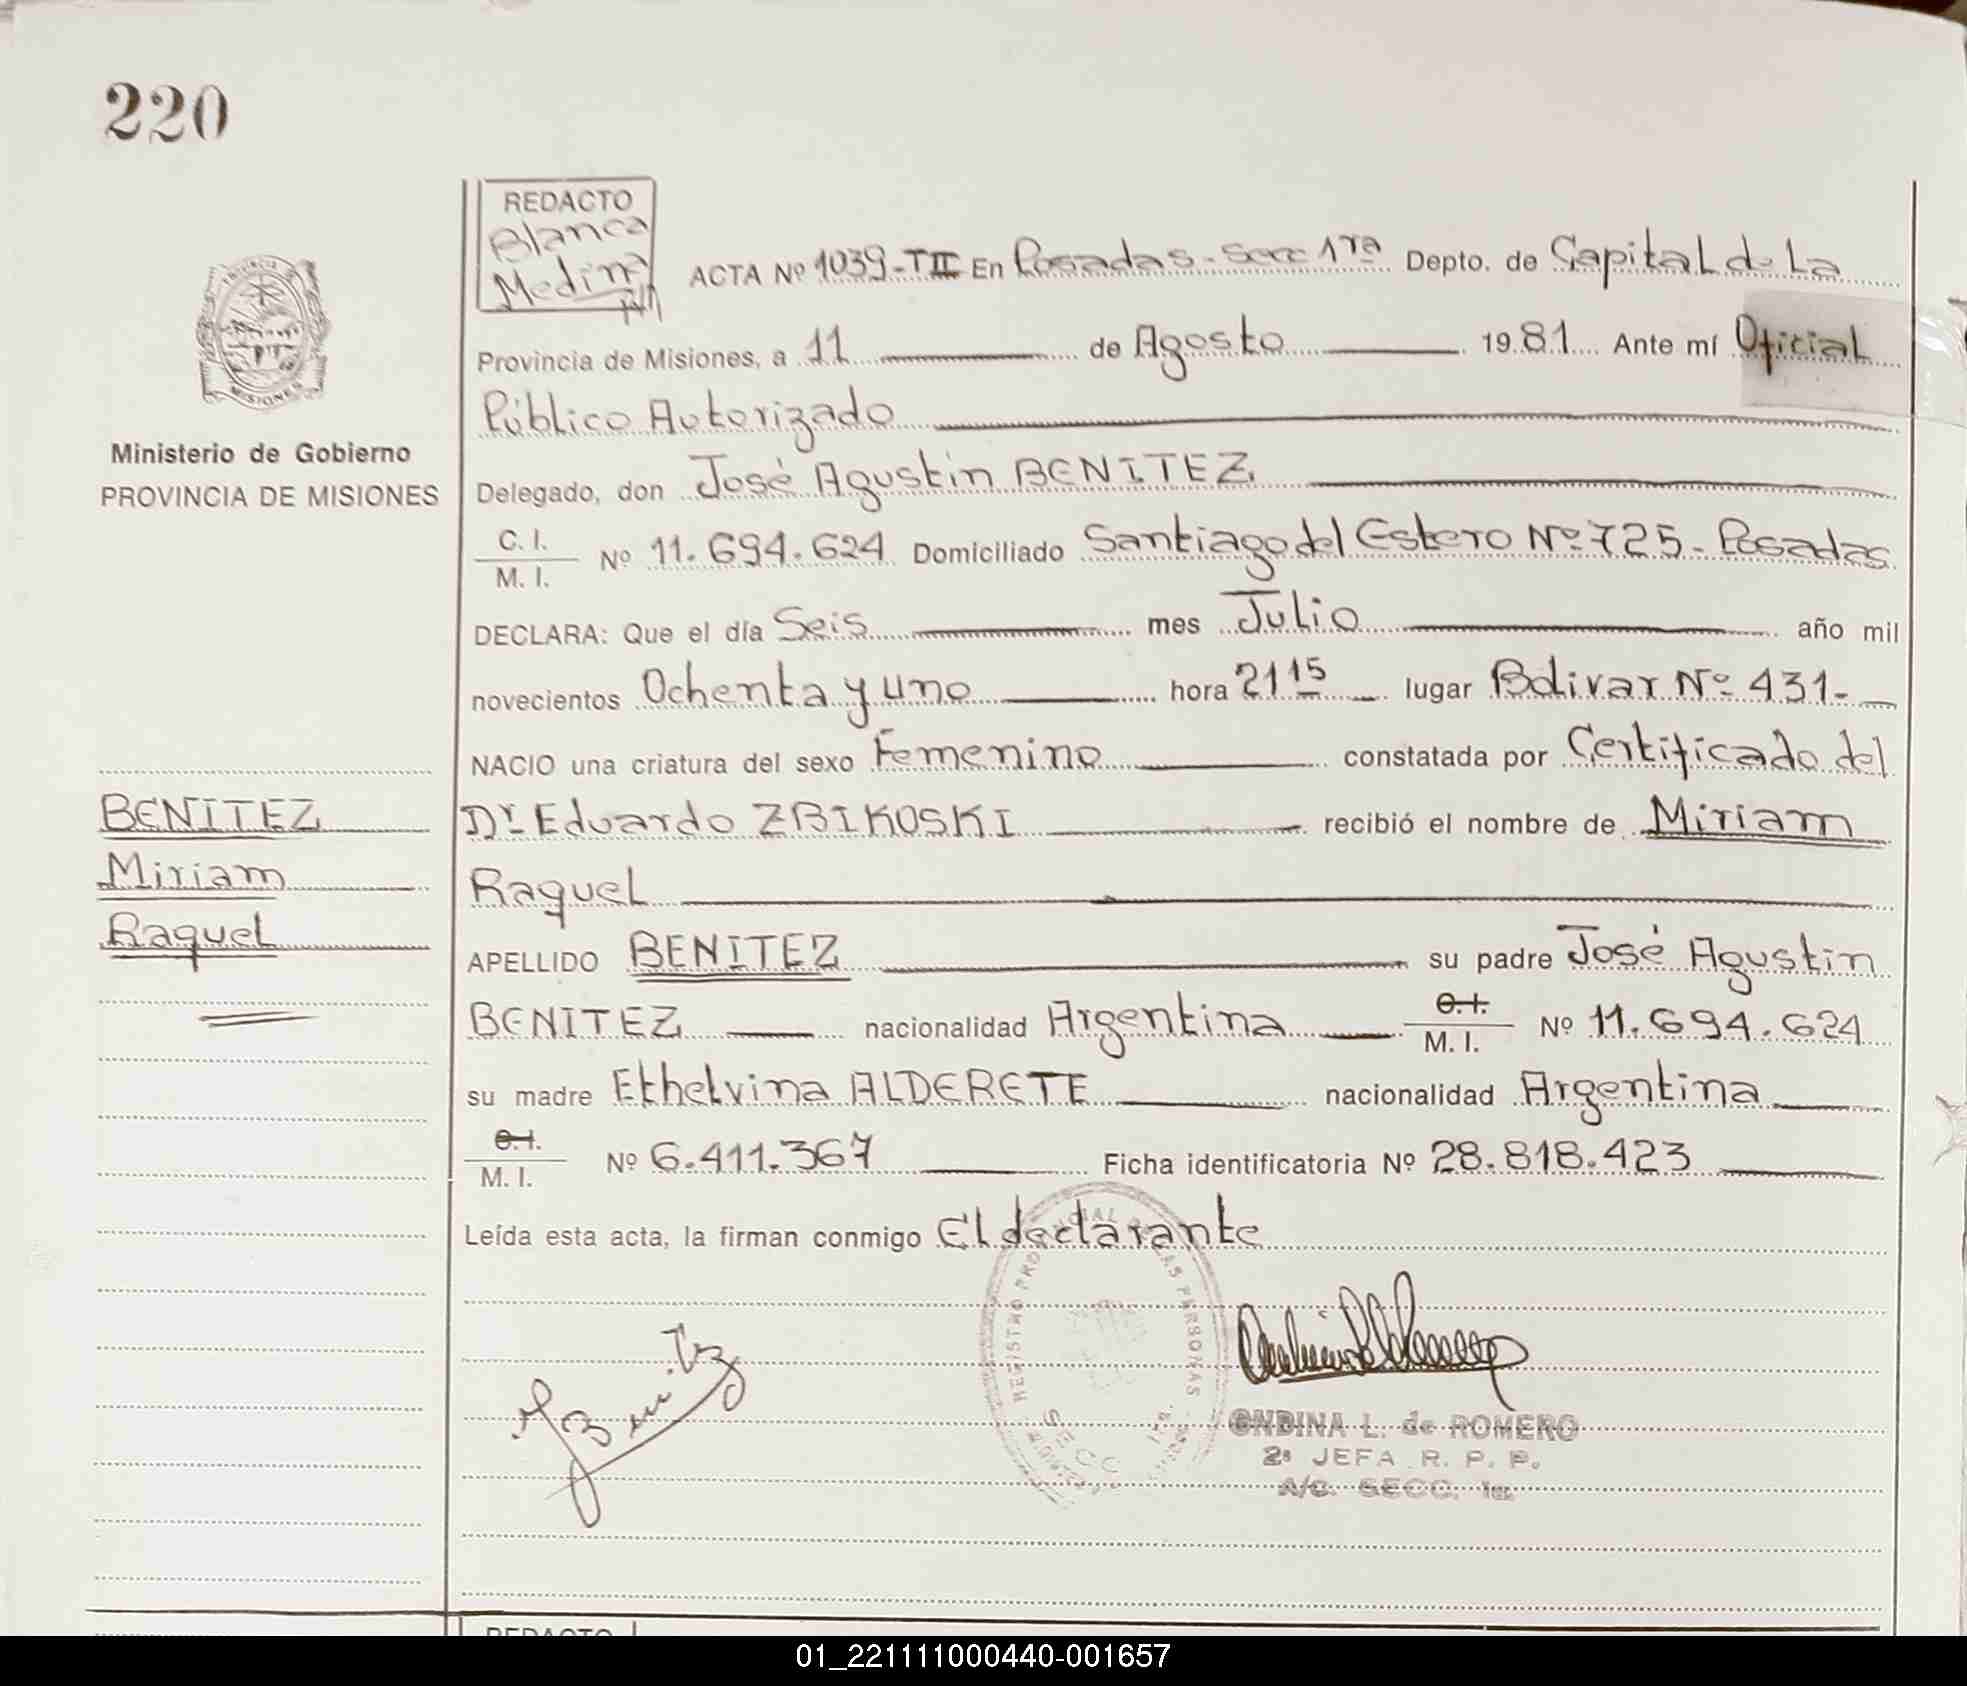 220
REDACTO
Blanca
Medina
ACTA Nº 1039-TII En Posadas - Secc 1ra Depto. de Capital de La
Provincia de Misiones, a 11 de Agosto 1981 Ante mí Oficial
Público Autorizado
Delegado, don José Agustin BENITEZ
C. I.
M. I.
Nº 11.694.624 Domiciliado Santiago del Estero Nº 725 - Posadas
DECLARA: Que el día Seis mes Julio año mil
novecientos Ochenta y uno hora 21 15 lugar Bolivar Nº 431-
NACIO una criatura del sexo Femenino constatada por Certificado del
Dr Eduardo ZBIKOSKI recibió el nombre de Miriam
Raquel
APELLIDO BENITEZ su padre José Agustin
BENITEZ nacionalidad Argentina C.I. M. I. Nº 11.694.624
su madre Ethelvina ALDERETE nacionalidad Argentina
C.I.
M. I.
Nº 6.411.367 Ficha identificatoria Nº 28.818.423
Leída esta acta, la firman conmigo El declarante
PROVINCIA
MISIONES
Ministerio de Gobierno
PROVINCIA DE MISIONES
BENITEZ
Miriam
Raquel
REGISTRO PROVINCIAL DE LAS PERSONAS
SECC 1ra.
Benitez
ONDINA L. de ROMERO
2ª JEFA R. P. P.
A/C. SECC. 1ra.
REDACTO
01_221111000440-001657